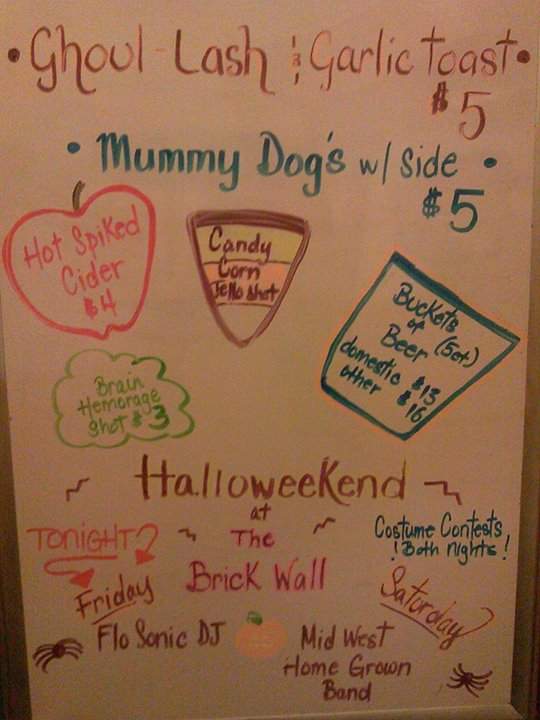 • Ghoul-Lash & Garlic toast •
$5
• Mummy Dog's w/ side •
$5
Hot Spiked
Cider
$4
Candy
Corn
Jello shot
Buckets
of (5ct.)
Beer
domestic $13
other $16
Brain
Hemorage
shot $3
Halloweekend
at
The
Brick Wall
TONIGHT?
Friday
Flo Sonic DJ
Costume Contests
! Both nights!
Saturday?
Mid West
Home Grown
Band